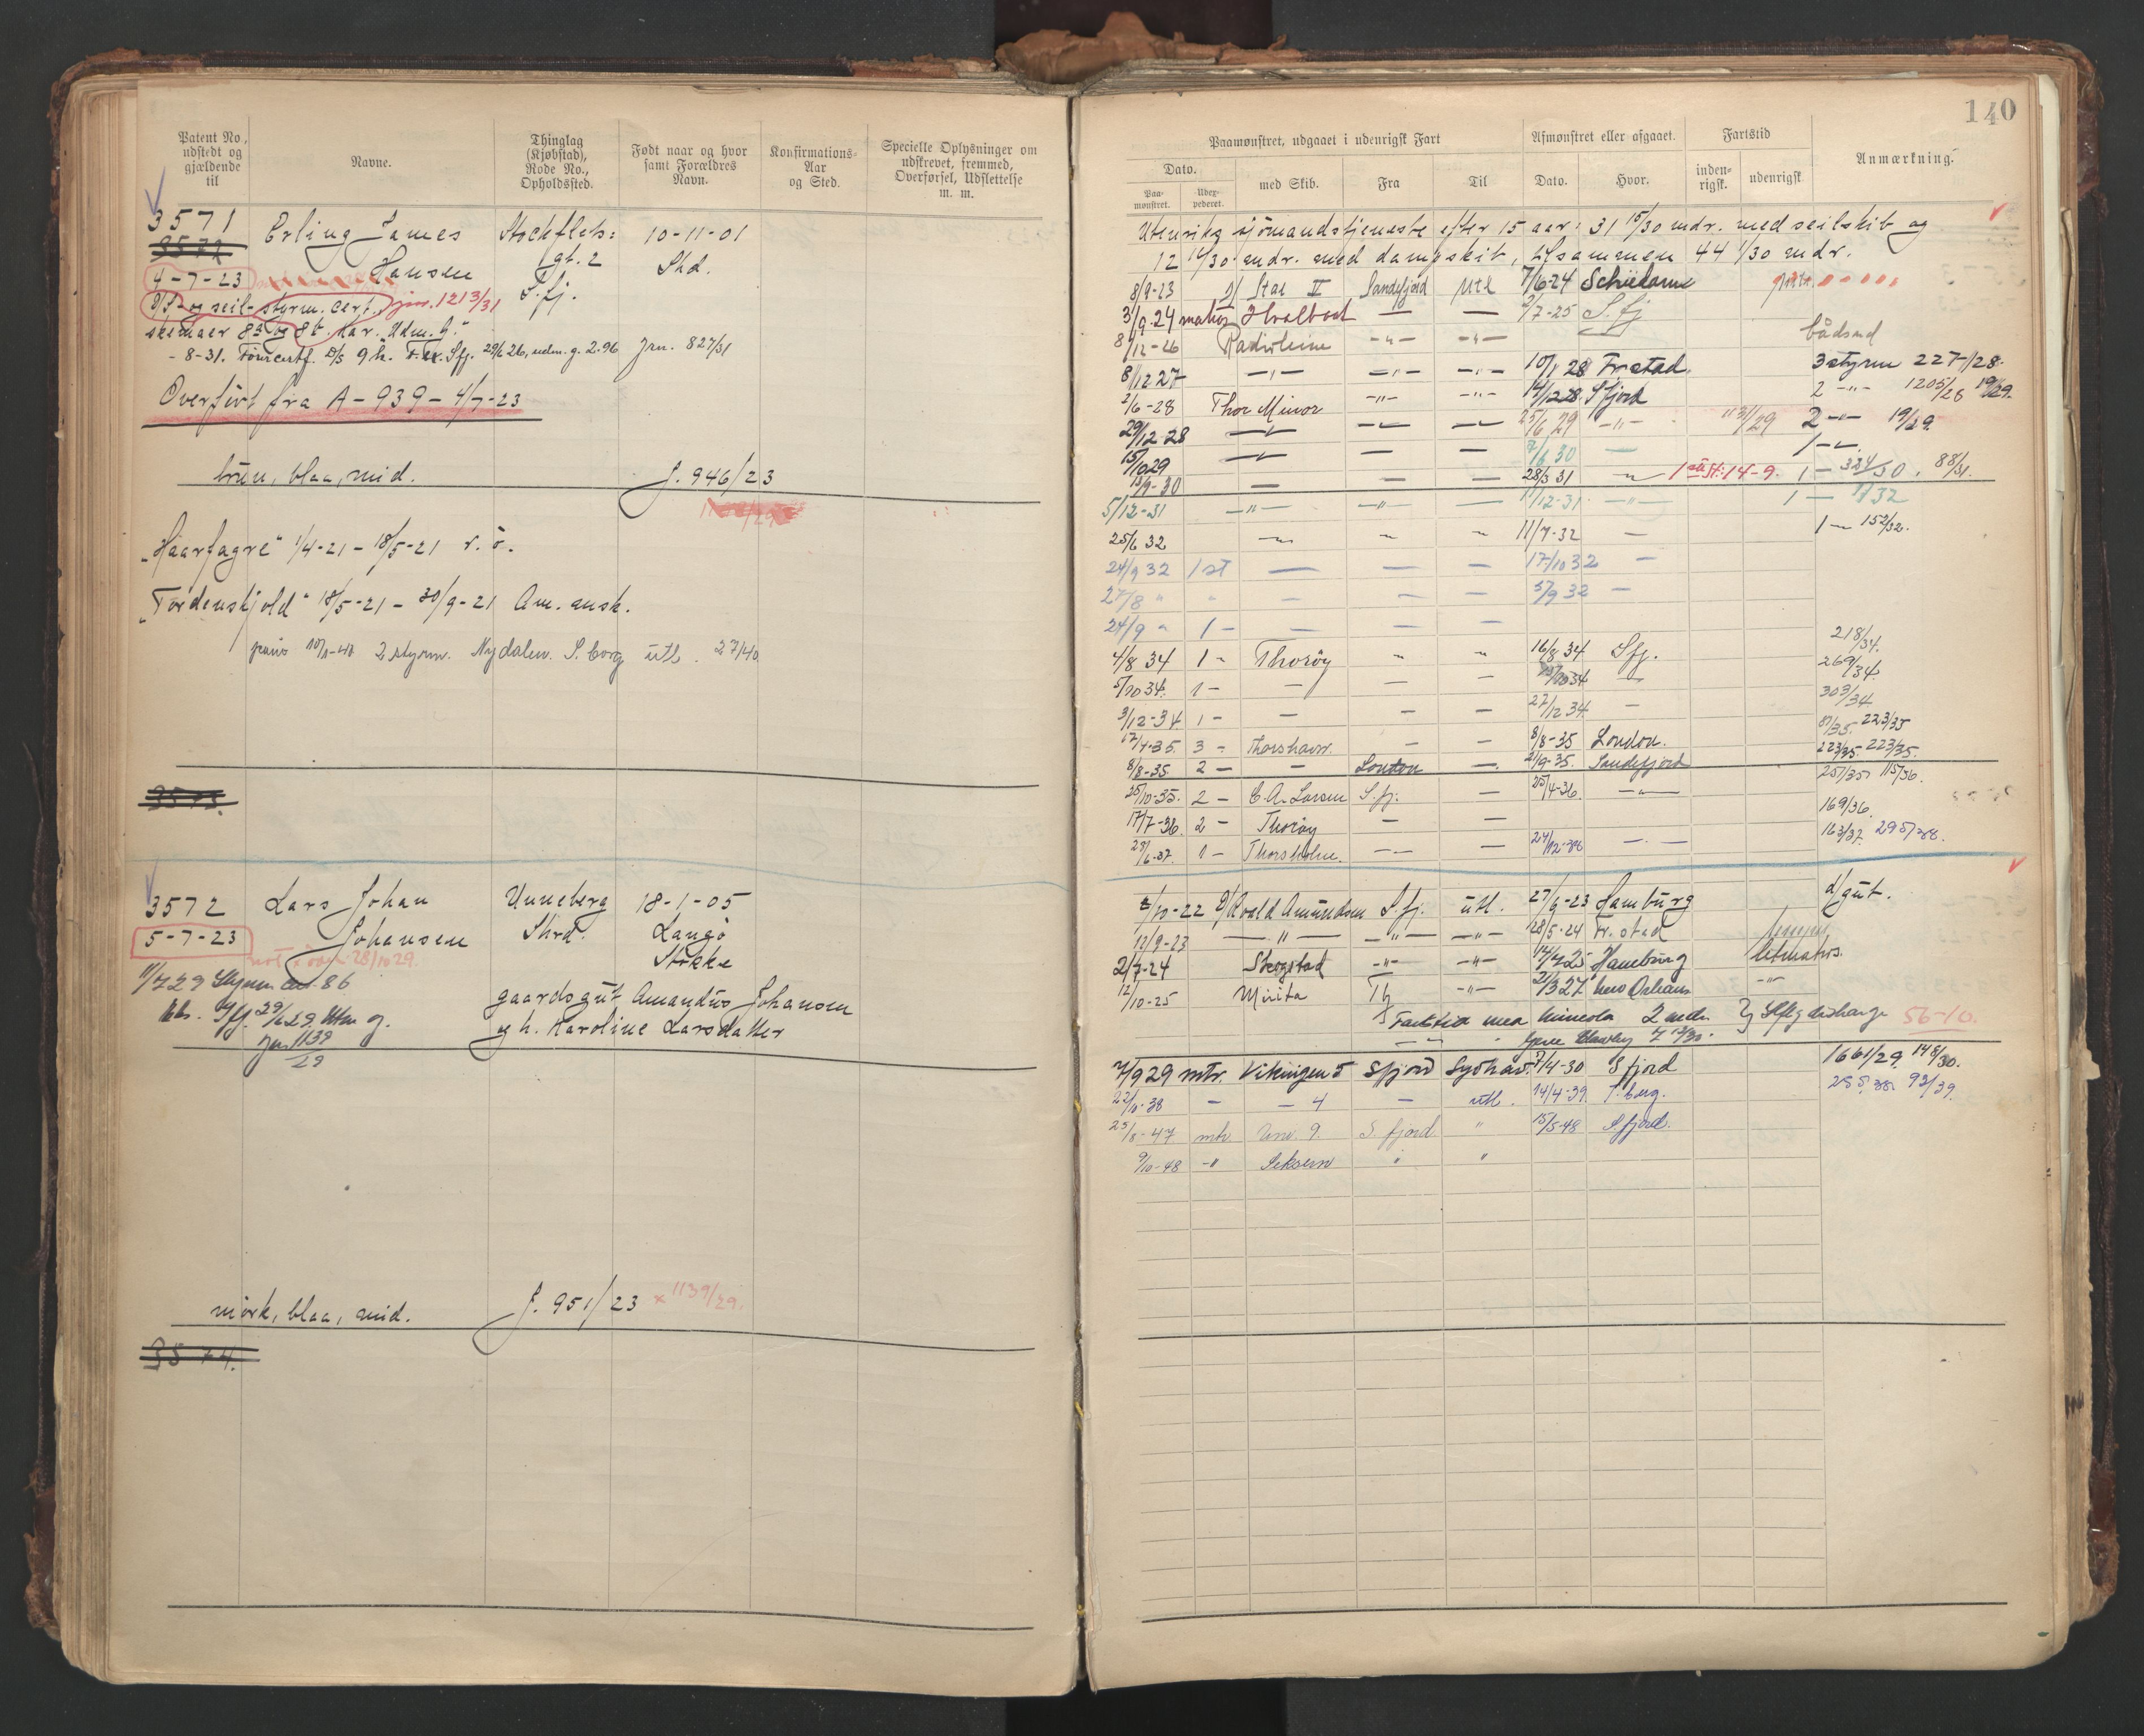 140
Patent No., udstedt og gjældende til
Navne.
Thinglag (Kjøbstad), Rode No., Opholdssted.
Født naar og hvor samt Forældres Navn.
Konfirmations-Aar og Sted.
Specielle Oplysninger om udskrevet, fremmed, Overførsel, Udslettelse m. m.
3571 Erling James Stockflets: 10-11-01
3572 Hansen gt. 2 Shd.
4-7-23 S.fj.
D/S og seil-styrm. cert. jnr. 1213/31
skemaer 8a og 8b. Kar. "Udm. G."
-8-31. D/S 9 h. Sfj. 29/6 26, udm. g. 2.96 Jrn. 827/31
Overført fra A-939-4/7-23
brun, blaa, mid. J. 946/23
"Haarfagre" 1/4-21 - 18/5-21 v. ö.
"Tordenskjold" 18/5-21 - 30/9-21 Am. ansk.
2 styrm. Nydalen. S. borg utl. 27/40
3573.
3572 Lars Johan Unneberg 18-1-05
5-7-23 Johansen Shrd. Langø
28/10 29. Stokke
11/7 29 Styrm 86 gaardsgut Amandus Johansen
29/6 29. Utm g. og h. Karoline Larsdatter
Jrn 1139/29
mörk, blaa, mid. J. 951/23 x 1139/29.
3574.
Paamønstret, udgaaet i udenrigsk Fart
Afmønstret eller afgaaet.
Fartstid
Anmærkning.
Dato.
Paa-mønstret.
Udex-pederet.
med Skib.
Fra
Til
Dato.
Hvor.
inden-rigsk.
udenrigsk
Utenriks sjömandstjeneste efter 15 aar: 31 15/30 mdr. med seilskib og
12 16/30 mdr. med dampskib, tilsammen 44 1/30 mdr.
8/9-23 D/ Star II Sandefjord utl 7/6-24 Schiedam
3/9-24 matros Hvalbaat — — 2/7-25 S.fj
8/12-26 Radioleine -"- -"- bådsmd
8/12 27 -"- -"- -"- 10/1 28 Fr.stad. 3 styrm 227/28
2/6-28 Thor Minor -"- -"- 14/12 28 Sfjord 2 -"- 1205/28 19/29.
29/12-28 — — — 25/6 29 -"- 1131/29 2 -"- 19/29
15/10 29 — — — 7/6 30 — 1 -
13/9-30 — — — 28/3 31 1 st: 14-9. 1 — 324/30. 88/31.
5/12-31 -"- -"- — 17/12-31 -"- 1 — 7/32
25/6 32 11/7-32 — 1 — 152/32.
24/9 32 1 st — — — 17/10 32 —
27/8 " " — — — 5/9 32 —
24/9 " 1 - — — —
4/8 34 1 - Thorøy 16/8 34 Sfj. 218/34.
5/10 34. 1 - — — — — 269/34
3/12-34 1 - — — — 27/12 34 — 303/34
17/4-35. 3 - Thorshavn. — — 8/8-35 London. 81/35. 223/35
8/8-35. 2 — — London —. 21/9-35. Sandefjord 223/35. 223/35.
25/10-35. 2 - C. A. Larsen S.fj. — 25/4-36. 257/35 115/36.
17/7-36. 2 - Thorøy — — 169/36.
29/6-37. 1 - Thorsholm. — — 24/12-38 163/37. 295/38.
5/10-22 D/ Roald Amundsen S.fj. utl. 27/6-23 Hamburg d/gut.
12/9-23 — " — -"- -"- 28/5-24 Fr.stad
2/7-24 Skogstad -"- -"- 14/4 25 Hamburg letmatros.
12/10-25 Mirita Tg -"- 2/3 27 New Orleans -"-
Fartstid med Mineola 2 mdr 56-10.
7/9 29 mtr. Vikingen 5 Sfjord Sydhav. 7/4-30 Sfjord 1661/29. 148/30.
22/10-38 - - 4 — utl. 14/4-39. T.berg. 255/38. 93/39.
25/8-47 mtr Unr. 9. S.fjord " 15/5-48 S.fjord.
9/10-48 -" Seksern " "